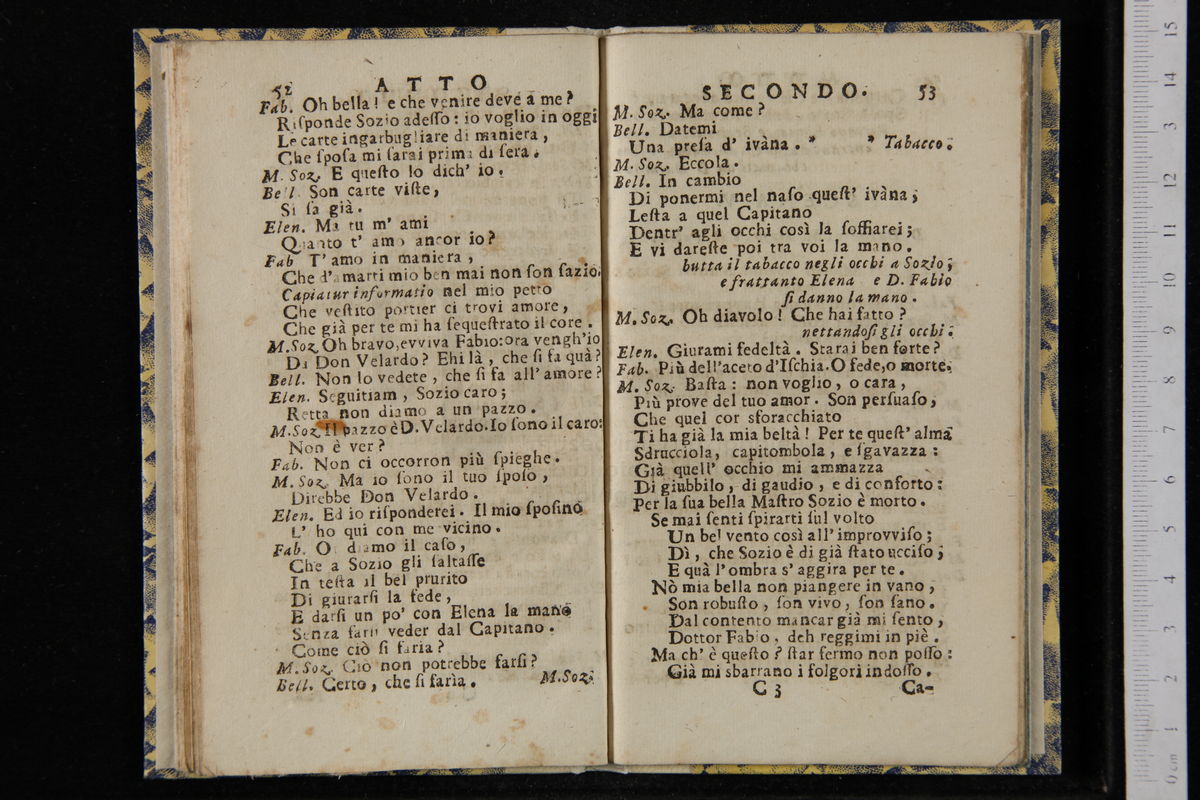 52 ATTO
Fab. Oh bella! e che venire deve a me?
Riſponde Sozio adeſſo: io voglio in oggi
Le carte ingarbugliare di maniera,
Che ſpoſa mi ſarai prima di ſera.
M. Soz. E queſto lo dich' io.
Bell. Son carte viſte,
Si ſa già.
Elen. Ma tu m' ami
Quanto t' amo ancor io?
Fab T' amo in maniera,
Che d'amarti mio ben mai non ſon ſazio.
Capiatur informatio nel mio petto
Che veſtito portier ci trovi amore,
Che già per te mi ha ſequeſtrato il core.
M.Soz. Oh bravo, evviva Fabio: ora vengh'io
Di Don Velardo? Ehi là, che ſi fa quà?
Bell. Non lo vedete, che ſi fa all' amore?
Elen. Seguitiam, Sozio caro;
Retta non diamo a un pazzo.
M.Soz. Il pazzo è D. Velardo. Io ſono il caro:
Non è ver?
Fab. Non ci occorron più ſpieghe.
M. Soz. Ma io ſono il tuo ſpoſo,
Direbbe Don Velardo.
Elen. Ed io riſponderei. Il mio ſpoſino
L' ho qui con me vicino.
Fab. O diamo il caſo,
Che a Sozio gli ſaltaſſe
In teſta il bel prurito
Di giurarſi la fede,
E darſi un po' con Elena la mano
Senza farſi veder dal Capitano.
Come ciò ſi faria?
M. Soz. Ciò non potrebbe farſi?
Bell. Certo, che ſi farìa.
M.Soz.
SECONDO. 53
M. Soz. Ma come?
Bell. Datemi
Una preſa d' ivàna. * * Tabacco.
M. Soz. Eccola.
Bell. In cambio
Di ponermi nel naſo queſt' ivàna,
Leſta a quel Capitano
Dentr' agli occhi così la ſoffiarei;
E vi dareſte poi tra voi la mano.
butta il tabacco negli occhi a Sozio;
e frattanto Elena e D. Fabio
ſi danno la mano.
M. Soz. Oh diavolo! Che hai fatto?
nettandoſi gli occhi.
Elen. Giurami fedeltà. Starai ben forte?
Fab. Più dell'aceto d'Iſchia. O fede, o morte.
M. Soz. Baſta: non voglio, o cara,
Più prove del tuo amor. Son perſuaſo,
Che quel cor sforacchiato
Ti ha già la mia beltà! Per te queſt' alma
Sdrucciola, capitombola, e ſgavazza:
Già quell' occhio mi ammazza
Di giubbilo, di gaudio, e di conforto:
Per la ſua bella Maſtro Sozio è morto.
Se mai ſenti ſpirarti ſul volto
Un bel vento così all' improvviſo;
Dì, che Sozio è di già ſtato ucciſo;
E quà l' ombra s' aggira per te.
Nò mia bella non piangere in vano,
Son robuſto, ſon vivo, ſon ſano.
Dal contento mancar già mi ſento,
Dottor Fabio, deh reggimi in piè.
Ma ch' è queſto? ſtar fermo non poſſo:
Già mi sbarrano i folgori indoſſo.
C 3 Ca-